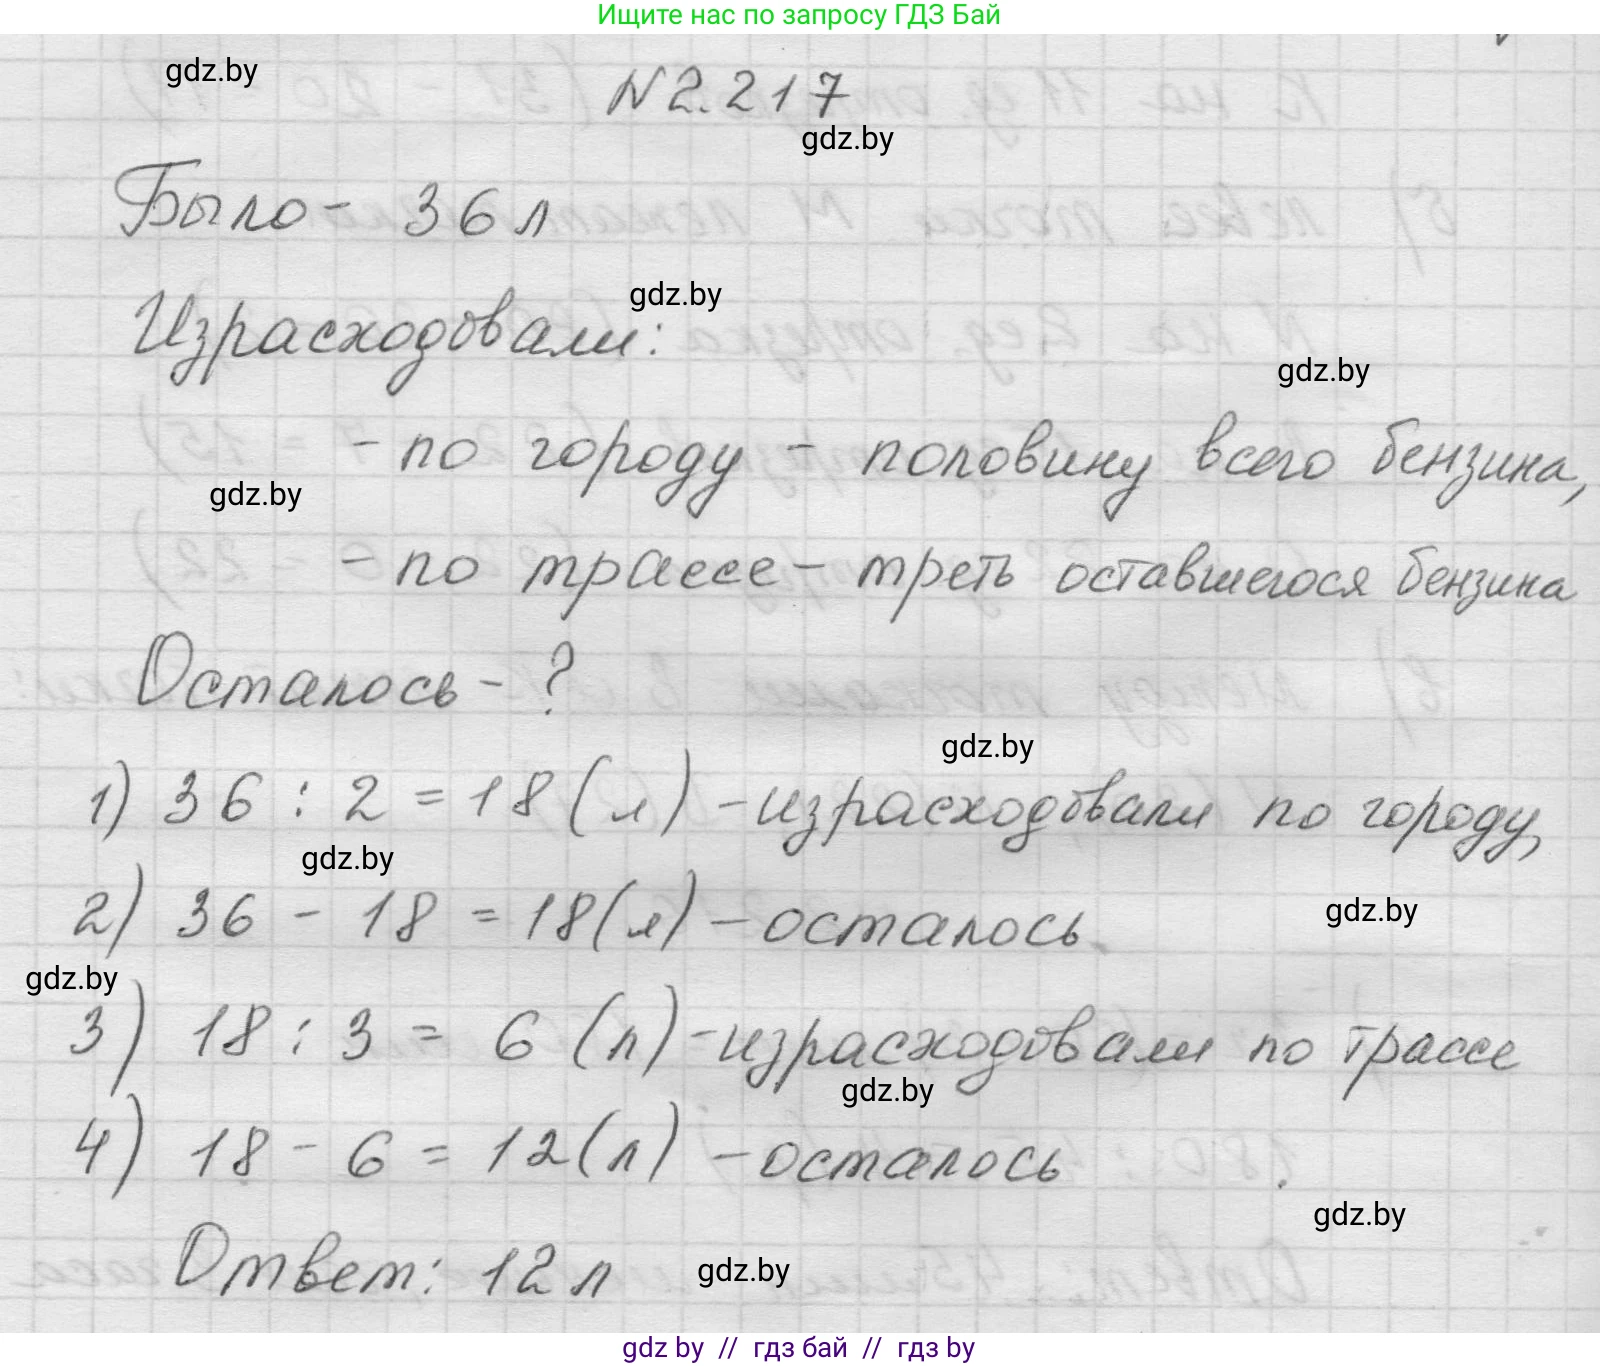 Ищите нас по запросу ГДЗ Бай
gdz.by
N2.217
gdz.by
Было - 36 л
gdz.by
Израсходовали:
gdz.by
- по городу - половину всего бензина,
gdz.by
- по трассе - треть оставшегося бензина
Осталось - ?
gdz.by
1) 36 : 2 = 18 (л) - израсходовали по городу,
gdz.by
2) 36 - 18 = 18 (л) - осталось
gdz.by
gdz.by
3) 18 : 3 = 6 (л) - израсходовали по трассе
gdz.by
4) 18 - 6 = 12 (л) - осталось.
gdz.by
Ответ: 12 л
gdz.by
gdz by // гдз бай // gdz by